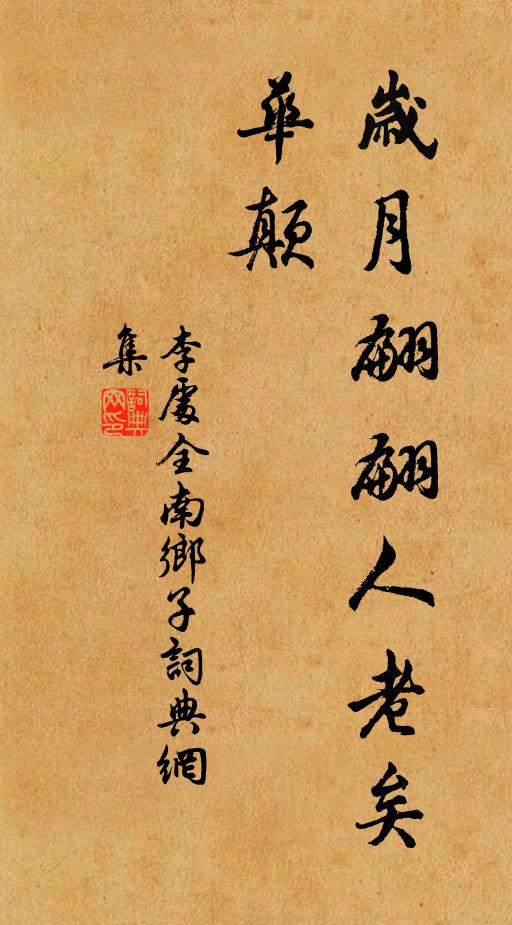 歲月翩翩人老矣
華顛
李處全南鄉子詞典網
集
詞典網印